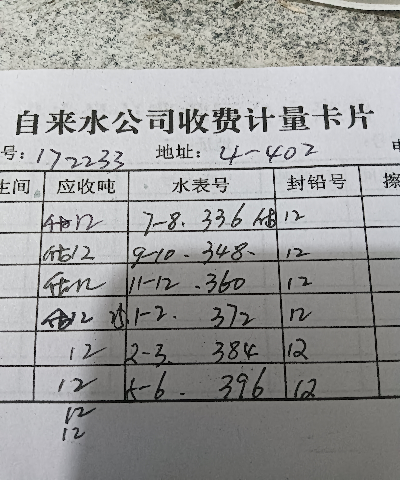 自来水公司收费计量卡片
号：172233 地址：4-402
生间 应收吨 水表号 封铅号
估12 7-8. 336 估 12
估12 9-10. 348. 12
估12 11-12. 360 12
估12 1-2. 372 12
12 2-3. 384 12
12 5-6. 396 12
12
12